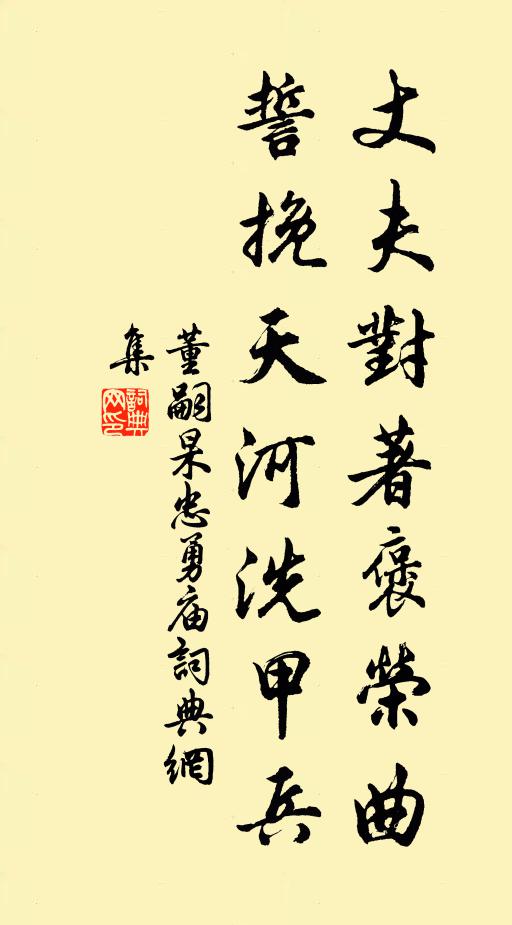 丈夫對著褒榮曲
誓挽天河洗甲兵
董嗣杲忠勇庙詞典網
集
詞典网印